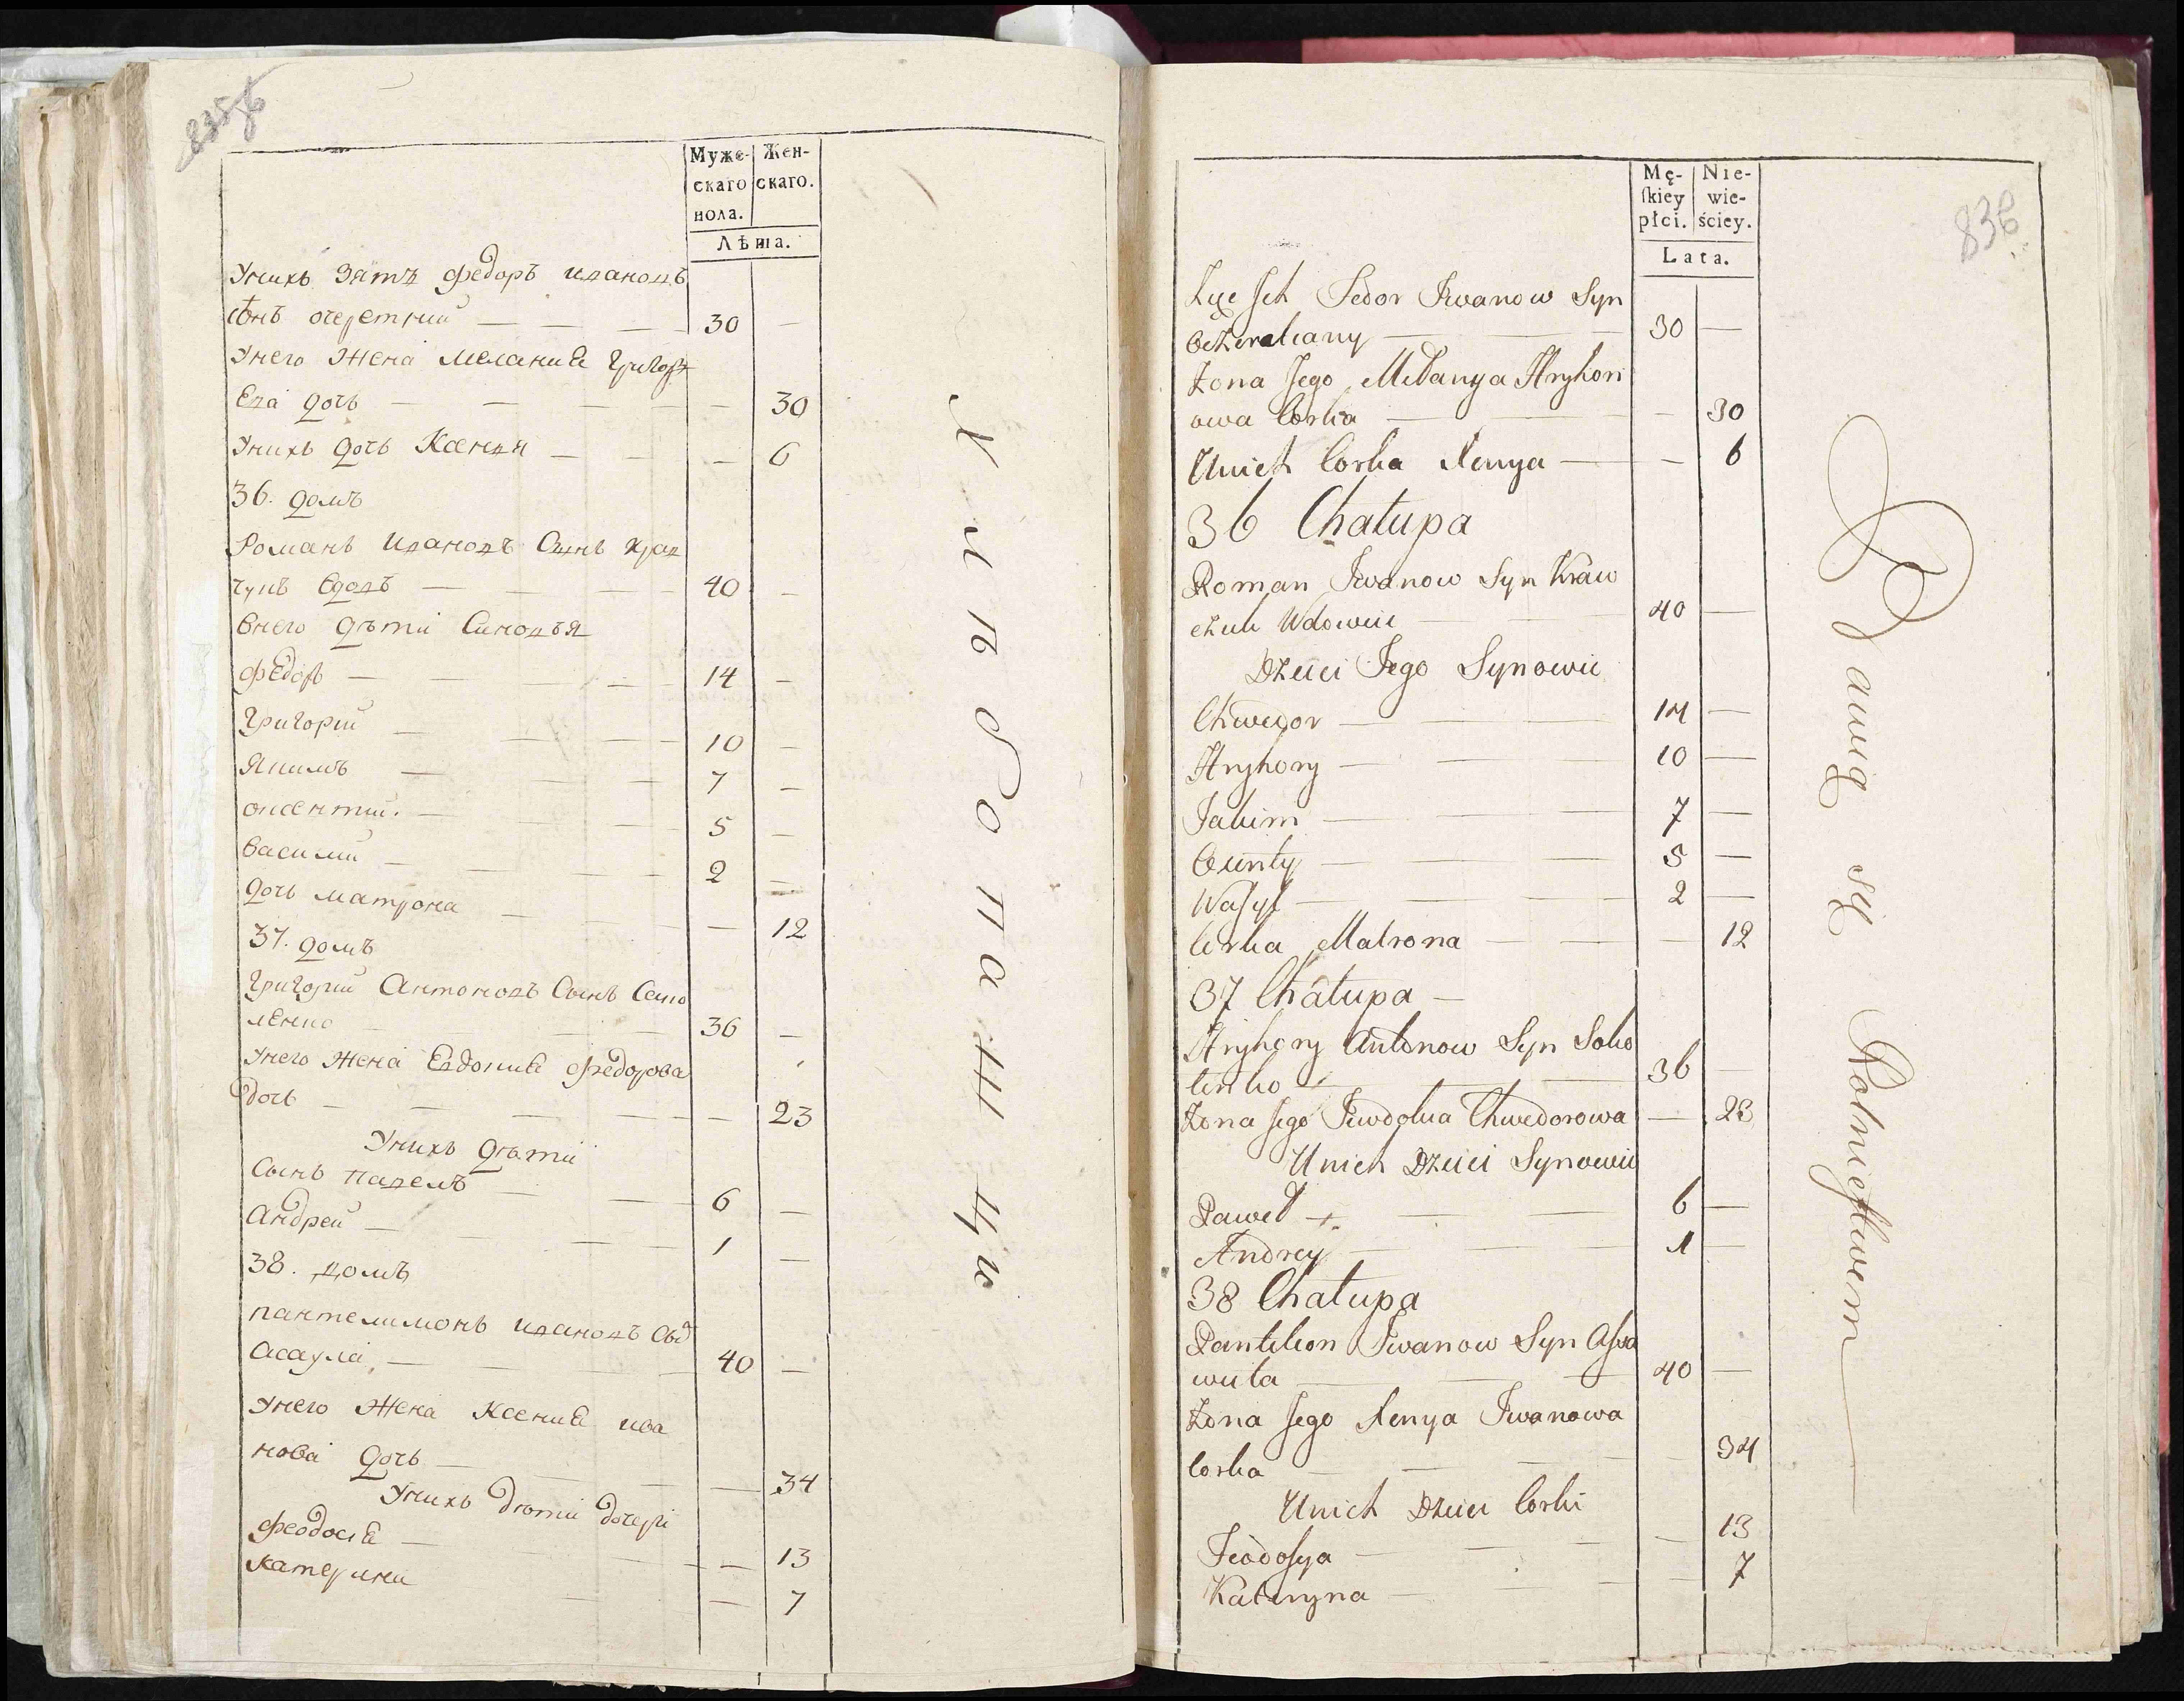 835б
Муже- Жен-
скаго скаго.
пола.
Лѣта.
Унихъ Зять Федоръ Ивановъ
сынъ очеретний — 30 —
Унего Жена Мелания Григор
Ева дочь — — 30
Унихъ дочь Ксения — — 6
36. домъ
Романъ Ивановъ Сынъ Крав
чукъ вдовъ — 40 —
Внего дѣти Синовья
Федоръ — 14 —
Григорий — 10 —
Якимъ — 7 —
оксентий. — 5 —
Василий — 2 —
дочь матрона — — 12
37. домъ
Григорий Антоновъ Сынъ Соко
ленко — 36 —
Унего Жена Евдокия Федорова
дочь — — 23
Унихъ дѣти
Сынъ павелъ — 6 —
Андрей — 1 —
38. домъ
пантелимонъ Ивановъ
Асаула — 40 —
Унего Жена Ксения ива
нова дочь — — 34
Унихъ дѣти дочери
Феодосия — — 13
Катерина — — 7
Хлѣбопашцы
836
Mę- Nie-
ſkiey wie-
płci. ściey.
Lata.
Fedor Iwanow Syn
30 —
Żona Jego Melanya Hryhori
owa Corka — — 30
Unich Corka Xenya — — 6
36 Chałupa
Roman Iwanow Syn Kraw
czuk Wdowiec 40 —
Dzieci Jego Synowie
Chwedor — 14 —
Hryhory — 10 —
Jakim — 7 —
5 —
Waſyl — 2 —
Corka Matrona — — 12
37 Chałupa —
Hryhory Antonow Syn Soko
lenko — 36 —
Żona Jego Iewdokia Chwedorowa — 23
Unich Dzieci Synowie
Paweł — 6 —
Andrey — 1 —
38 Chałupa
Pantelion Iwanow Syn Aſsa
wuła — 40 —
Żona Jego Xenya Iwanowa
Corka — — 34
Unich Dzieci Corki
Feodoſya — — 13
Kateryna — — 7
Bawią się Rolnictwem